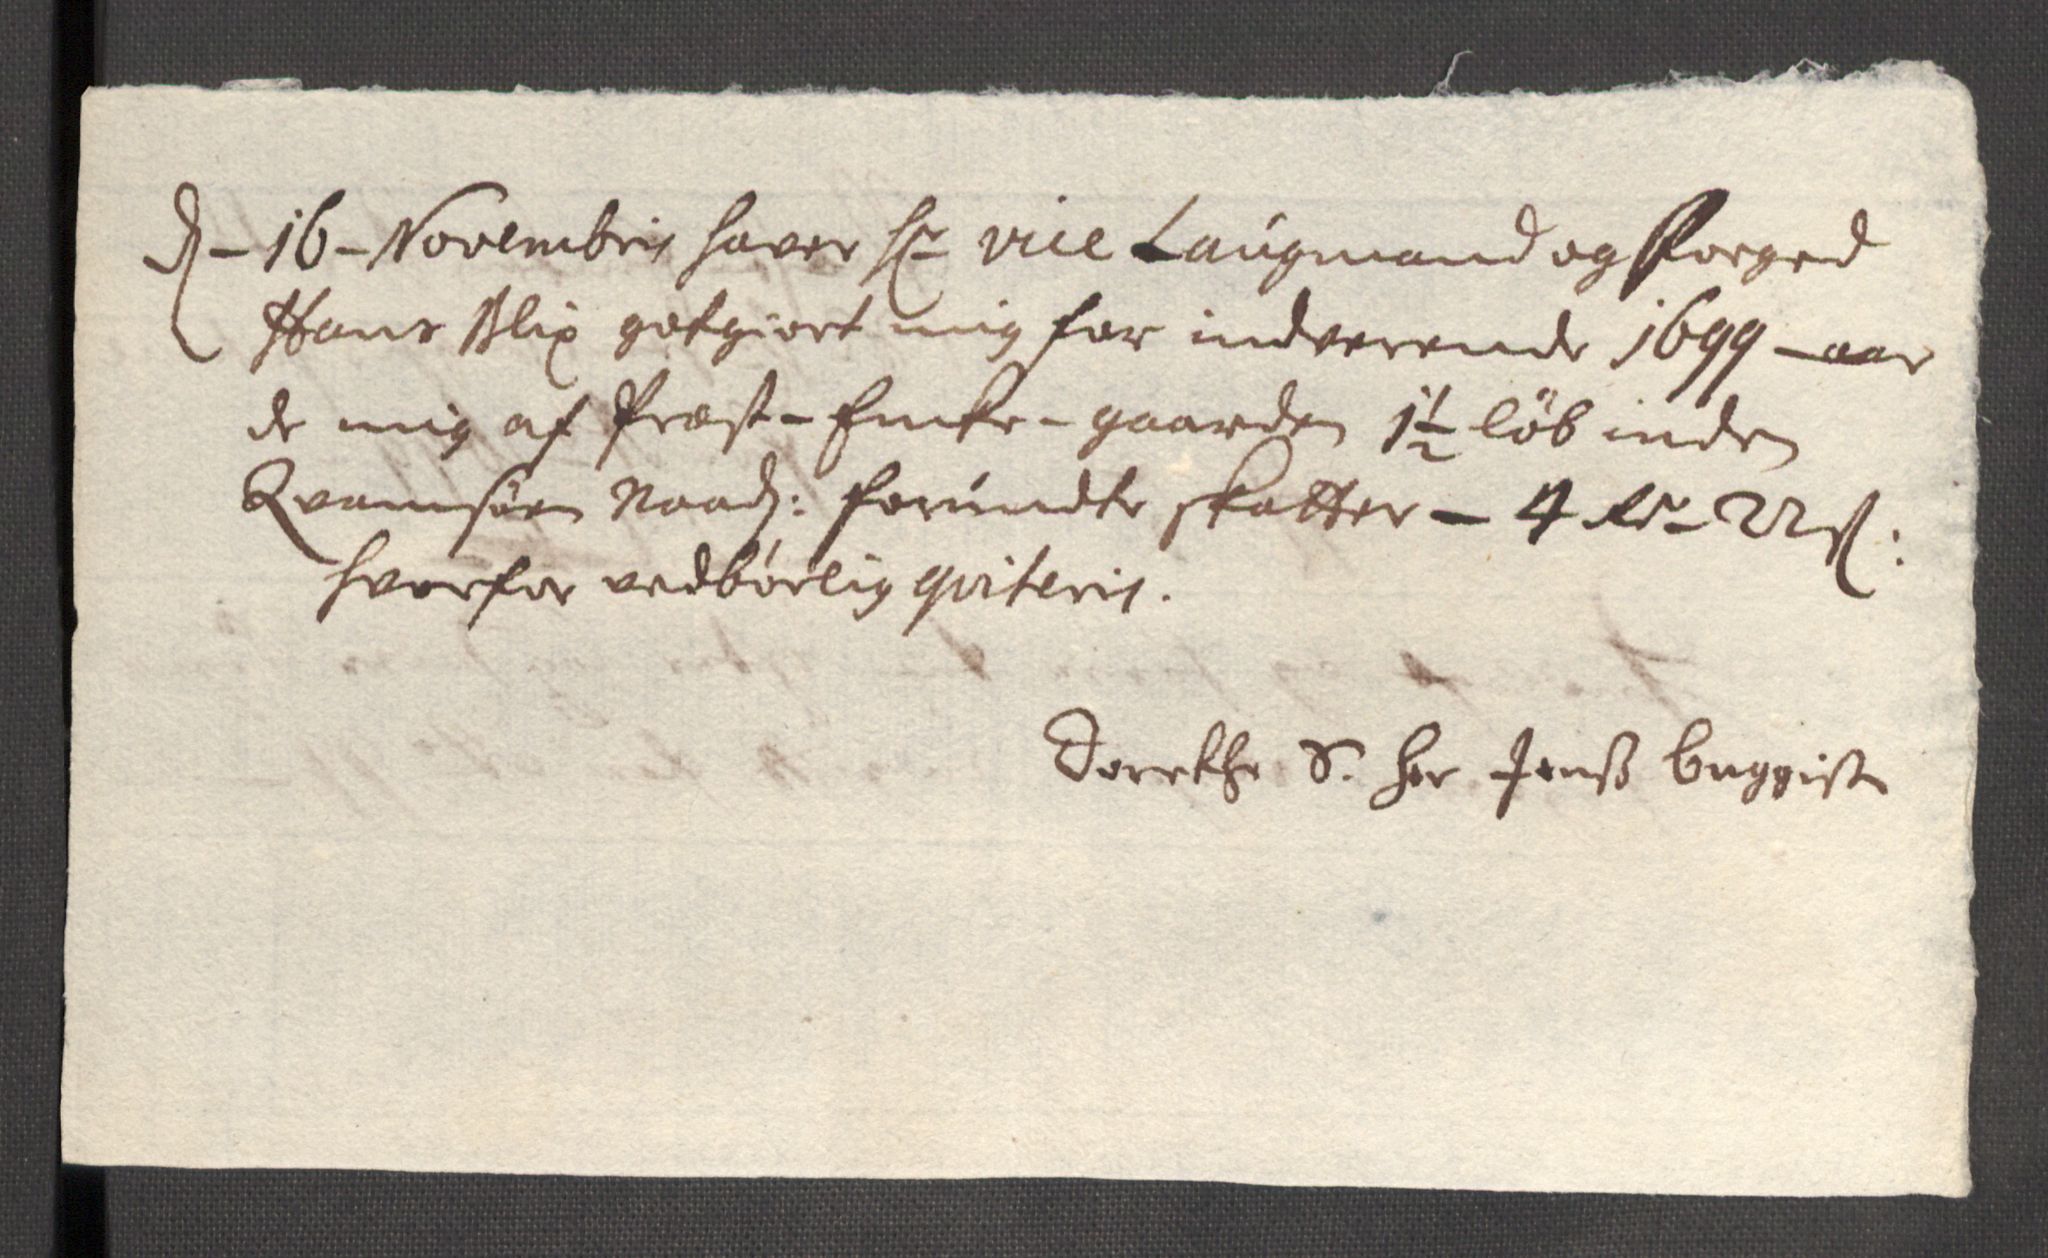 d. - 16 - Novembris haver hr vice Laugmand og Forged
Hans Blix gotgiort mig for indverende 1699 - aar
de mig af Præst - Encke - gaarden 1½ löb inden
Qvamsöen Naad: forundte skatter - 4 Rdr - 22 ß:
hvorfor vedbörlig qviteris.
Dorethe S. Her Jenß buggis